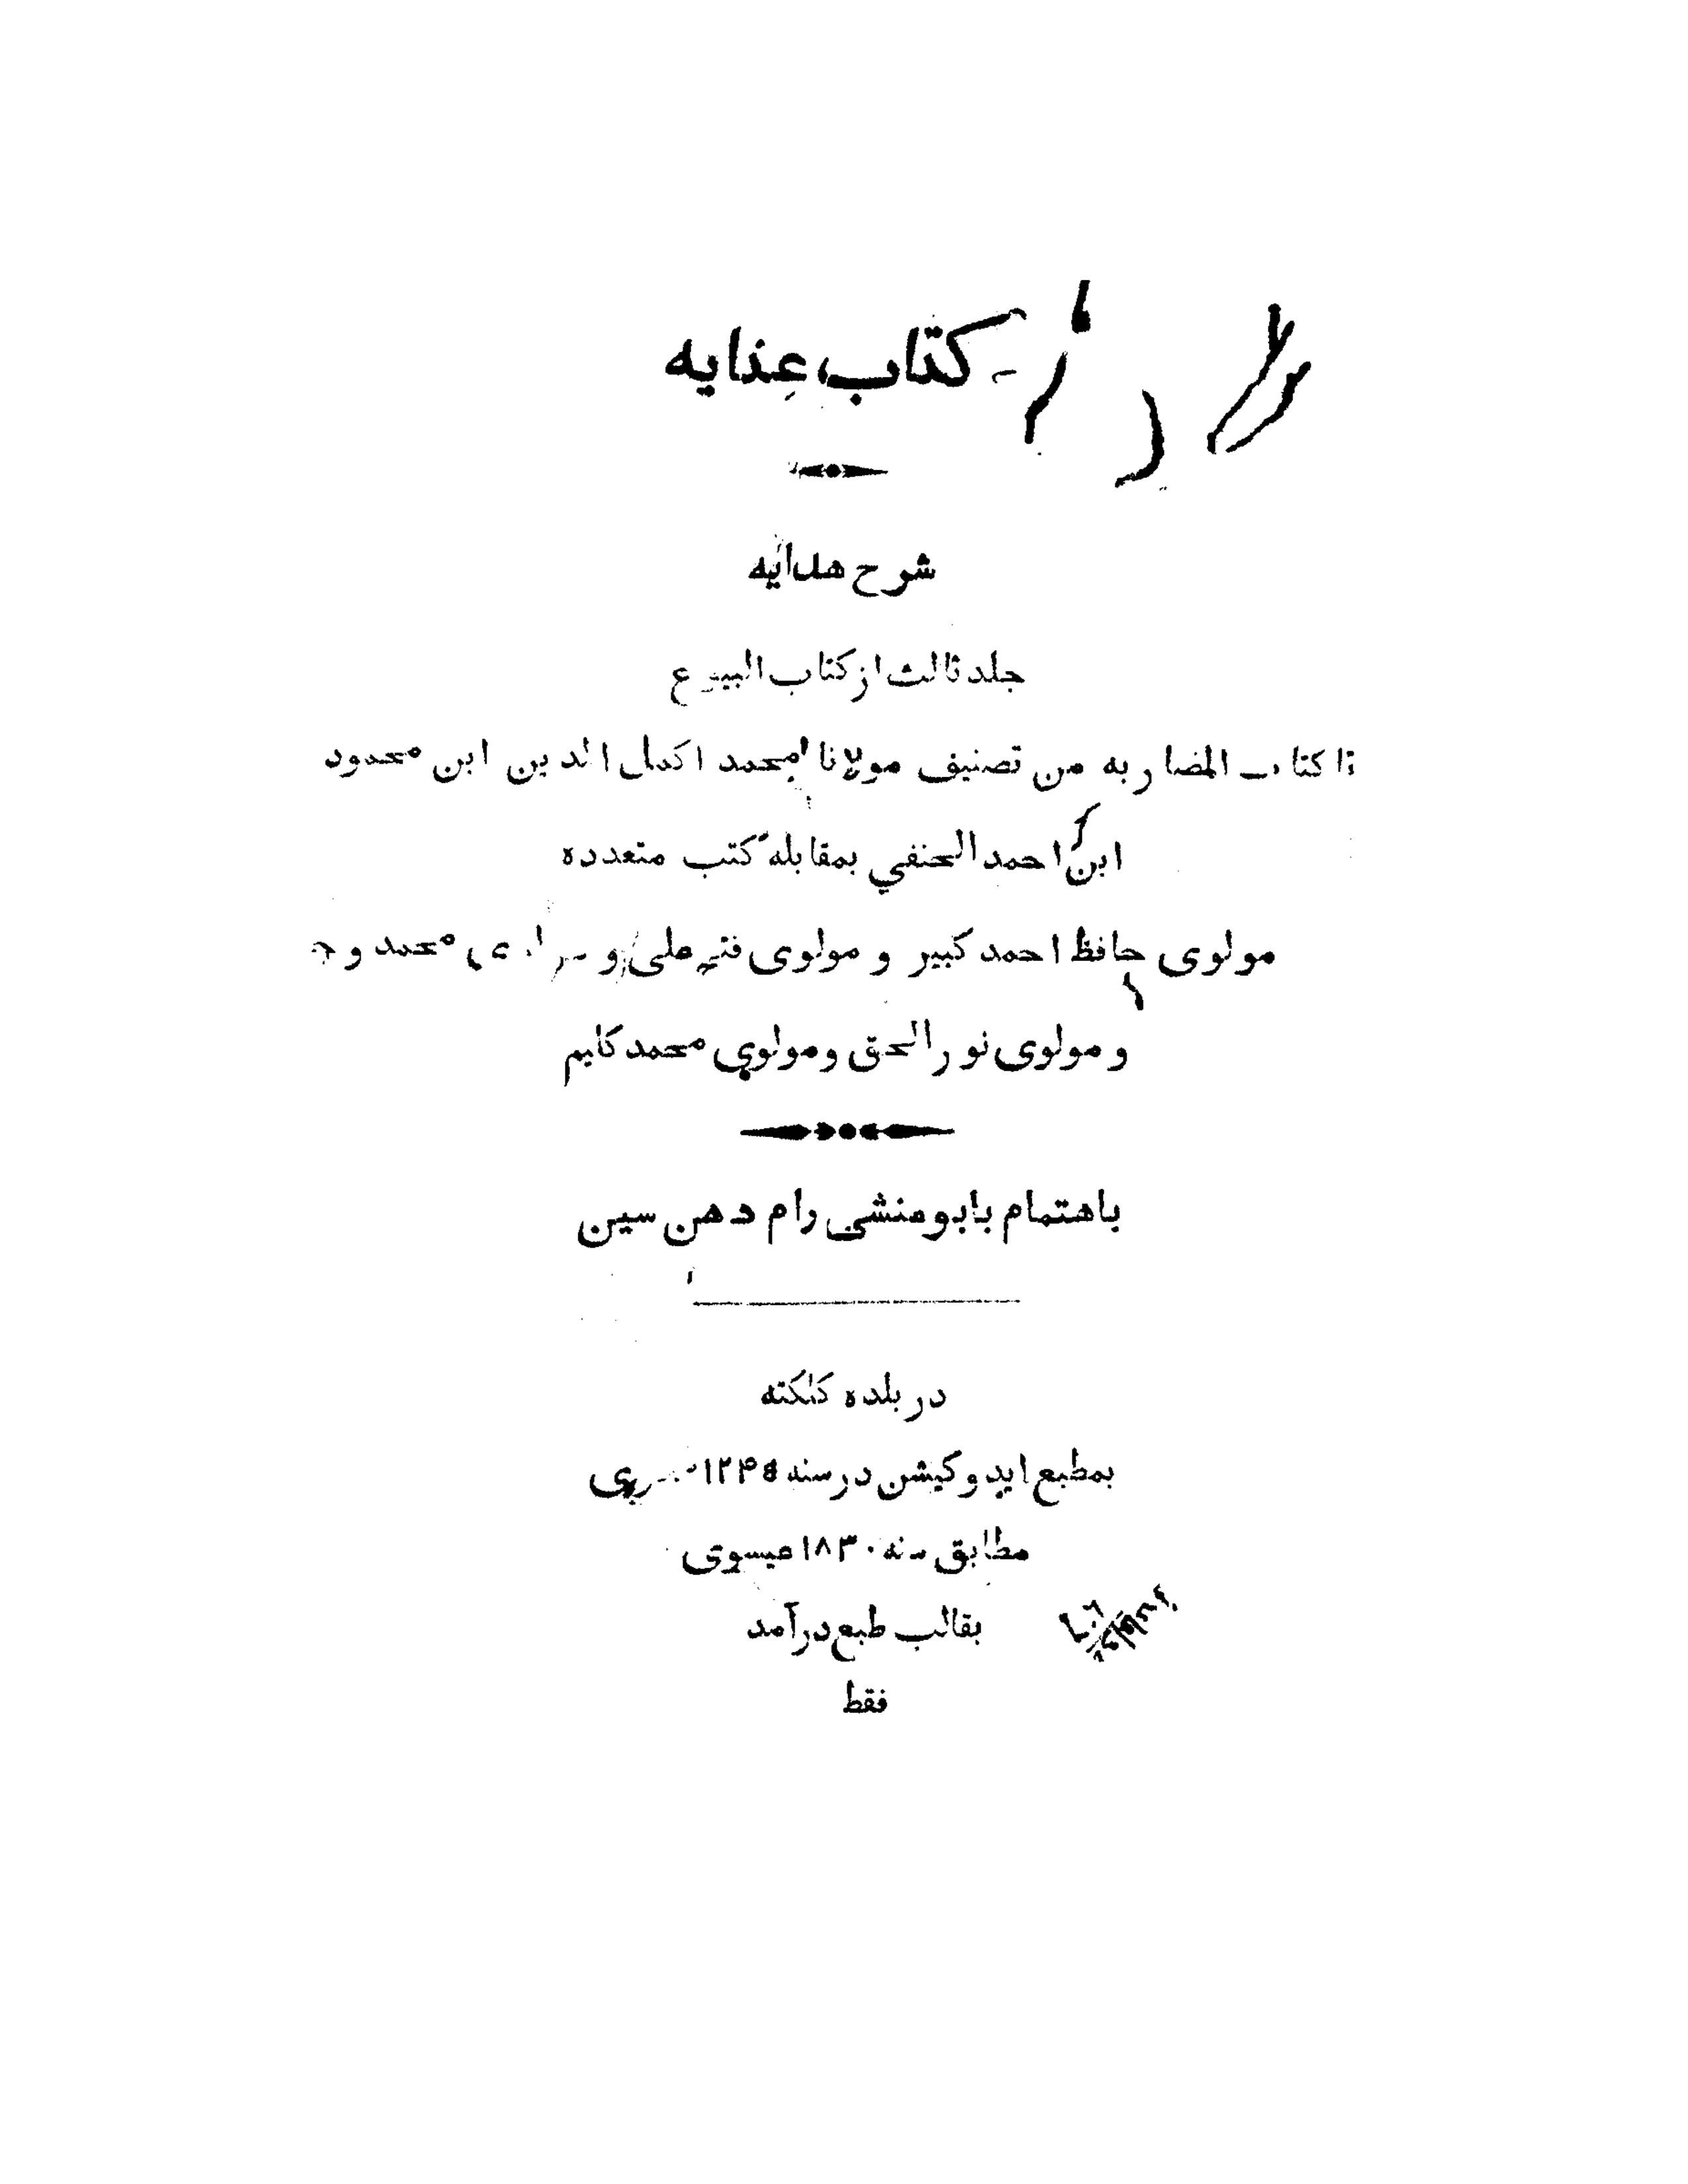 کتاب عنایه
شرح هدایه
جلد ثالث از کتاب البیوع
تا کتاب المضاربه من تصنیف مولانا محمد اکمل الدین ابن محمود
ابن احمد الحنفي بمقابله کتب متعدده
مولوی حافظ احمد کبیر و مولوی فتح علی و مولوی محمد وجیه
و مولوی نور الحق و مولوي محمد کلیم
باهتمام بابو منشی رام دهن سین
در بلده کلکته
بمطبع ایدوکیشن در سنه ۱۲۴۵ هجری
مطابق سنه ۱۸۳۰ عیسوی
بقالب طبع درآمد
فقط